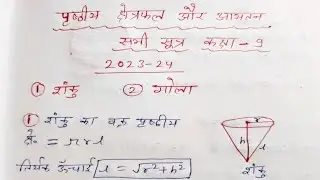 पृष्ठीय क्षेत्रफल और आयतन
सभी सूत्र कक्षा-9
2023-24
① शंकु ② गोला
① शंकु का वक्र पृष्ठीय
क्षे० = πrl
तिर्यक ऊँचाई l = √r²+h²
r
h
l
शंकु